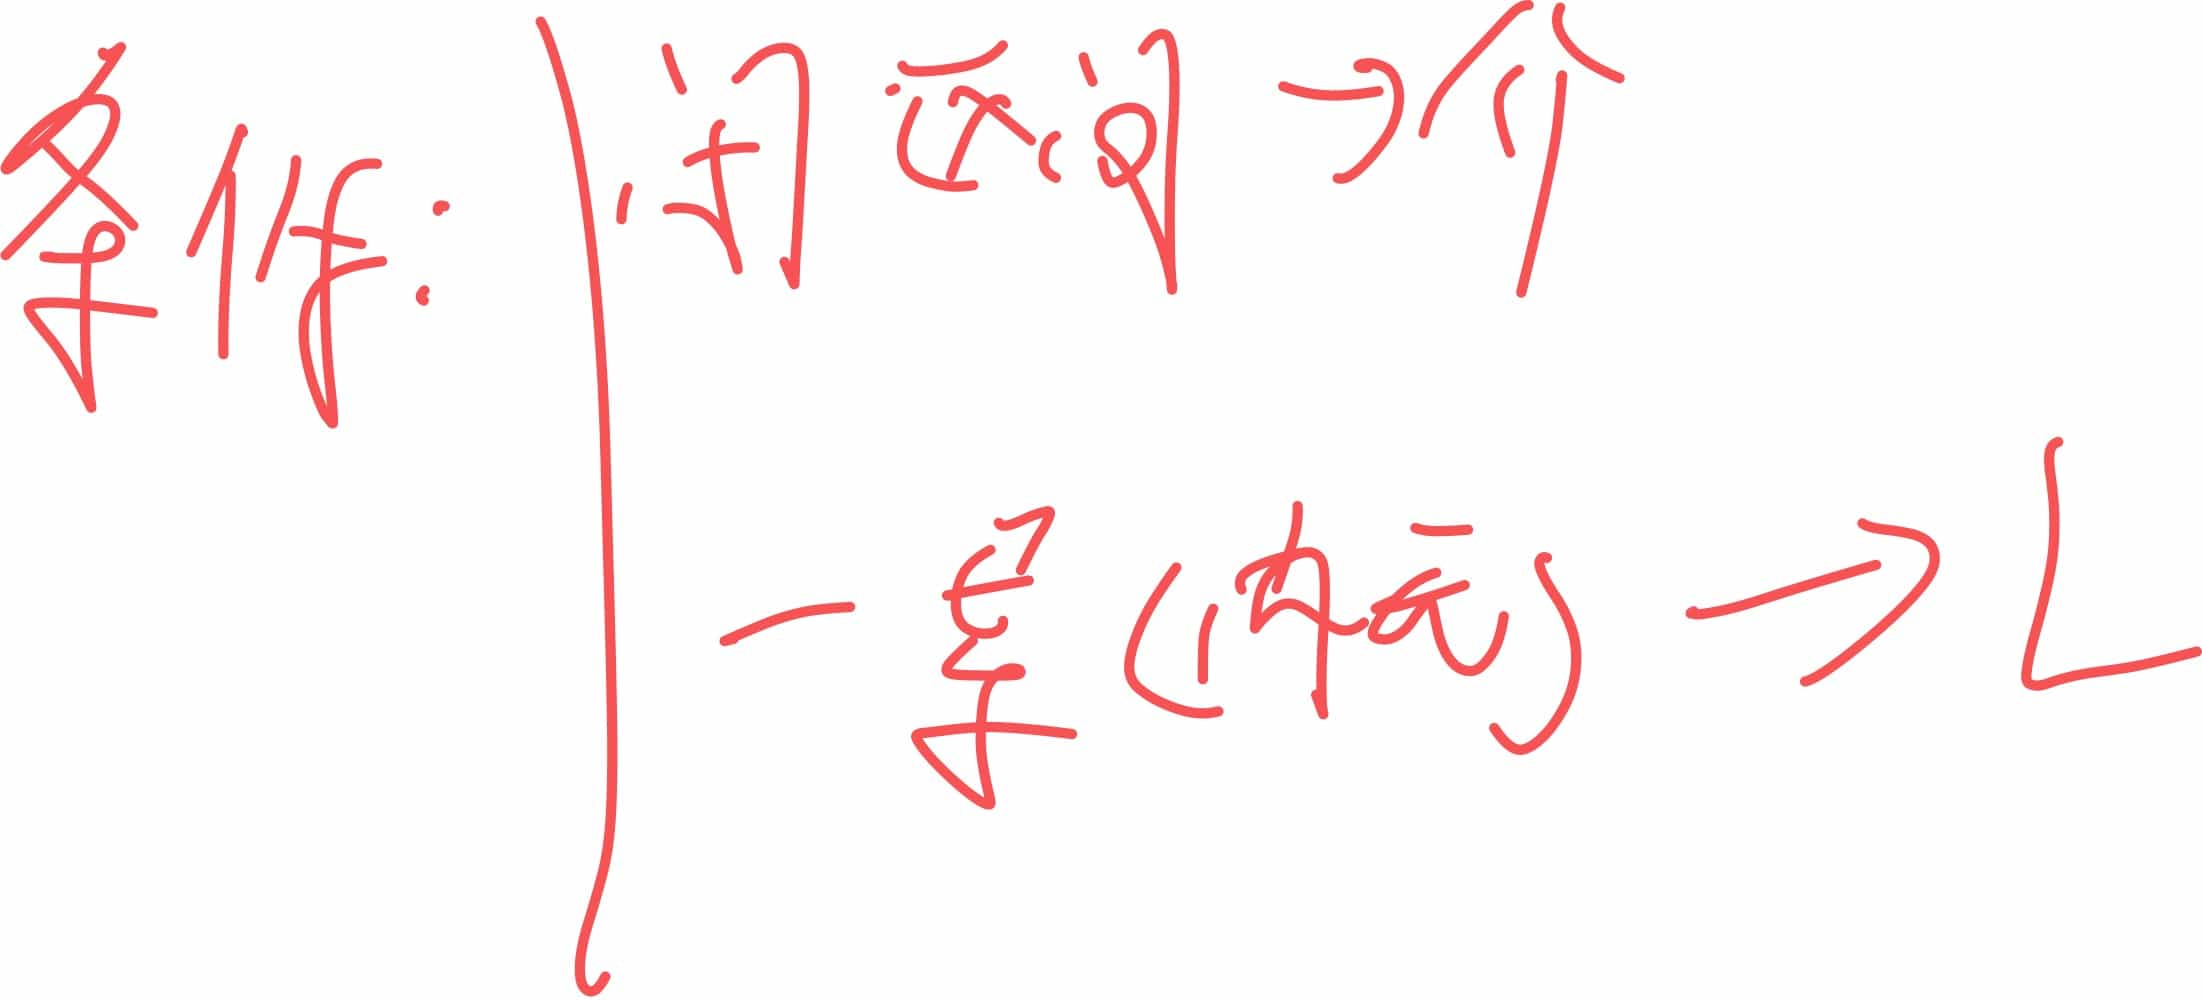 条件: 闭区间 → 介
一阶(内点) → L